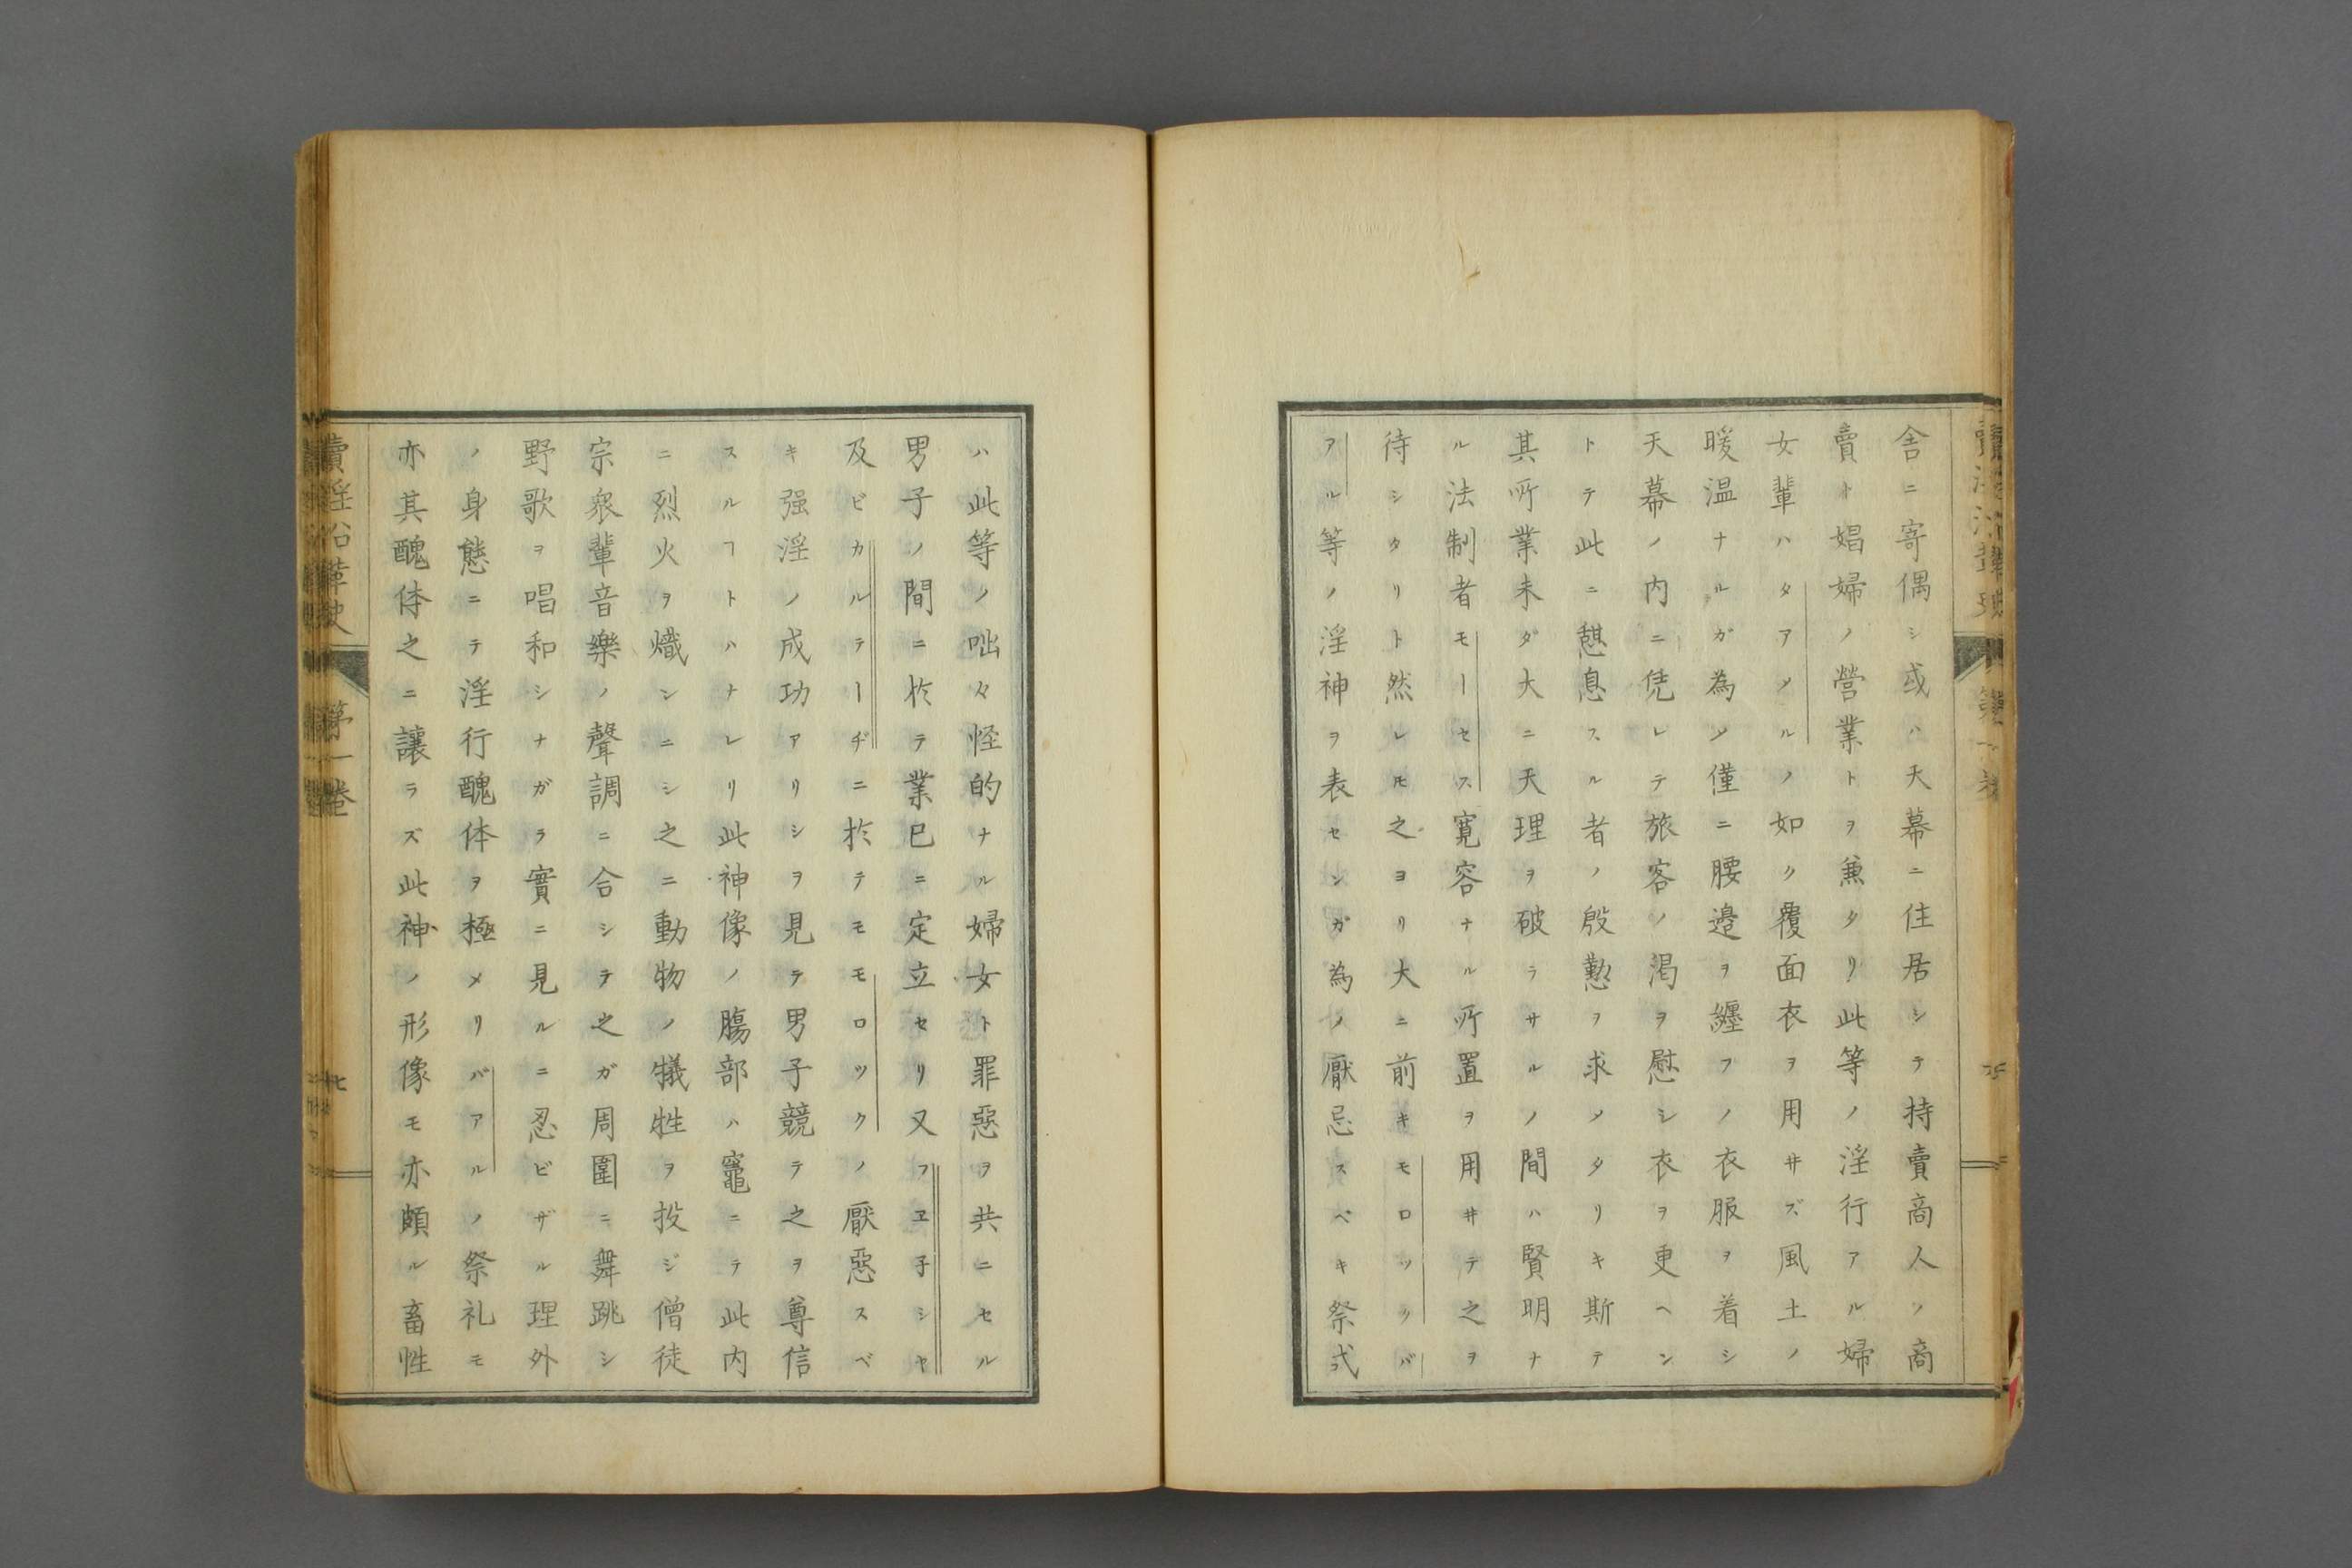 舎ニ寄偶シ或ハ天幕ニ住居シテ持賣商人ノ商
賣ト娼婦ノ營業トヲ兼タリ此等ノ淫行アル婦
女輩ハタアメルノ如ク覆面衣ヲ用井ズ風土ノ
暖温ナルガ為メ僅ニ腰邉ヲ纏フノ衣服ヲ着シ
天幕ノ内ニ凭レテ旅客ノ渇ヲ慰シ衣ヲ更ヘン
トテ此ニ憇息スル者ノ殷懃ヲ求メタリキ斯テ
其所業未ダ大ニ天理ヲ破ラサルノ間ハ賢明ナ
ル法制者モーセス寛容ナル所置ヲ用井テ之ヲ
待シタリト然レ𪜈之ヨリ大ニ前キモロック、バ
アル等ノ淫神ヲ表センガ為ノ厭忌スベキ祭式
ハ此等ノ咄々怪的ナル婦女ト罪惡ヲ共ニセル
男子ノ間ニ於テ業已ニ定立セリ又フヱ子シヤ
及ビカルテーヂニ於テモモロックノ厭惡スベ
キ强淫ノ成功アリシヲ見テ男子競テ之ヲ尊信
スルヿトハナレリ此神像ノ膓部ハ竈ニテ此内
ニ烈火ヲ熾ンニシ之ニ動物ノ犠牲ヲ投ジ僧徒
宗衆輩音樂ノ聲調ニ合シテ之ガ周圍ニ舞跳シ
野歌ヲ唱和シナガラ實ニ見ルニ忍ビザル理外
ノ身態ニテ淫行醜体ヲ極メリバアルノ祭礼モ
亦其醜体之ニ讓ラズ此神ノ形像モ亦頗ル畜性
賣淫沿革史 第一卷 七